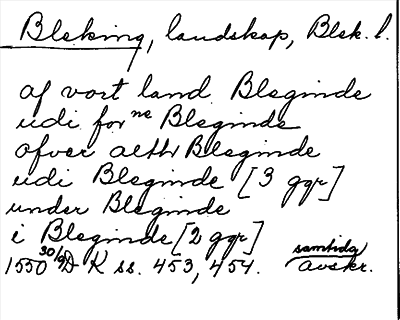 Bleking, landskap, Blek. l.
af vort land Bleginde
udi forne Bleginde
ofver alth Bleginde
udi Bleginde [3 ggr]
under Bleginde
i Bleginde [2 ggr]
1550 30/9 D K ss. 453, 454. samtida avskr.